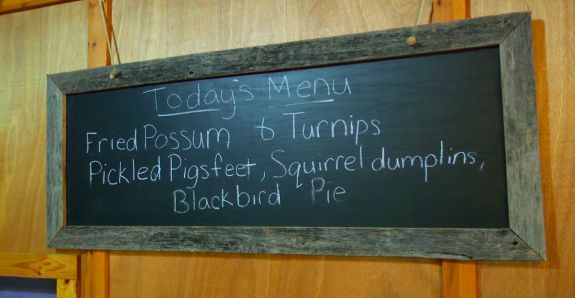 Today's Menu
Fried Possum & Turnips
Pickled Pigsfeet, Squirrel dumplins,
Blackbird Pie